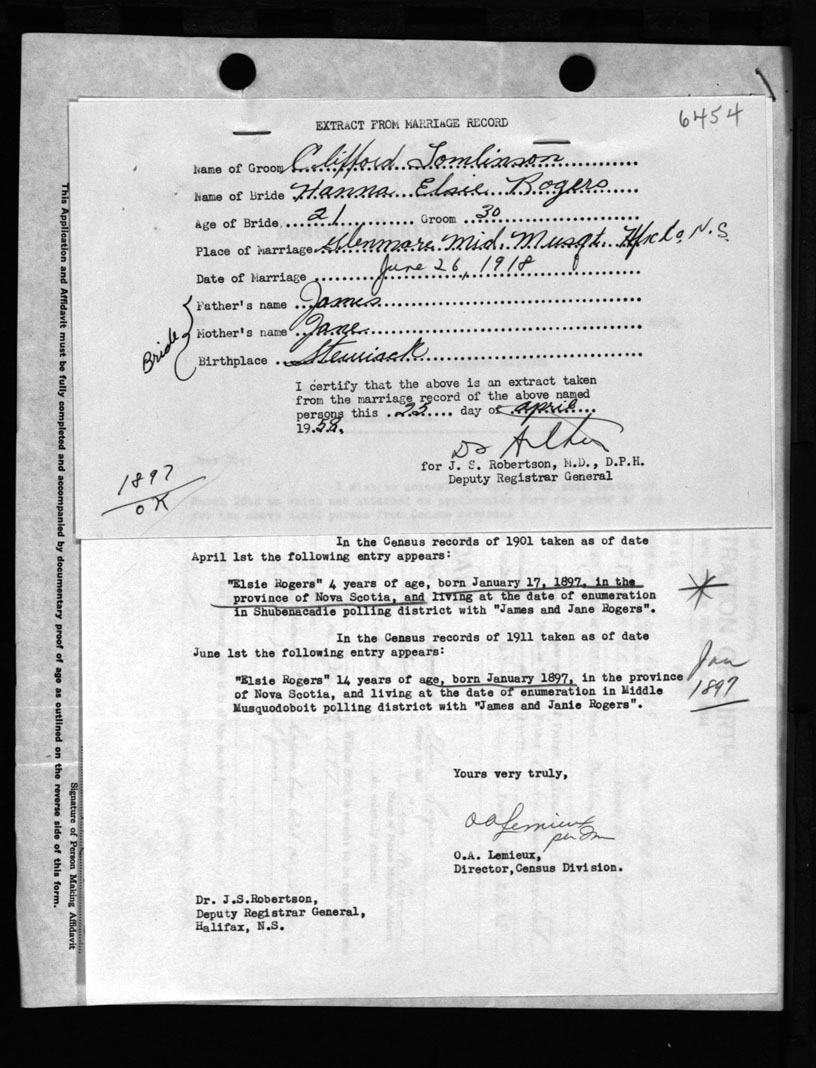 6454
EXTRACT FROM MARRIAGE RECORD
Name of Groom Clifford Tomlinson
Name of Bride Hanna Elsie Rogers
Age of Bride 21 Groom 30
Place of Marriage Glenmore Mid. Musqt. Hfx Co. N.S.
Date of Marriage June 26, 1918
Bride
Father's name James
Mother's name Jane
Birthplace Stewiack
I certify that the above is an extract taken
from the marriage record of the above named
persons this 25 day of April
1958.
for J. S. Robertson, M.D., D.P.H.
Deputy Registrar General
1897
OK
In the Census records of 1901 taken as of date
April 1st the following entry appears:
"Elsie Rogers" 4 years of age, born January 17, 1897, in the
province of Nova Scotia, and living at the date of enumeration
in Shubenacadie polling district with "James and Jane Rogers".
In the Census records of 1911 taken as of date
June 1st the following entry appears:
"Elsie Rogers" 14 years of age, born January 1897, in the province
of Nova Scotia, and living at the date of enumeration in Middle
Musquodoboit polling district with "James and Janie Rogers".
Jan
1897
Yours very truly,
OA Lemieux
per
O.A. Lemieux,
Director, Census Division.
Dr. J.S.Robertson,
Deputy Registrar General,
Halifax, N.S.
This Application and Affidavit must be fully completed and accompanied by documentary proof of age as outlined on the reverse side of this form.
Signature of Person Making Affidavit